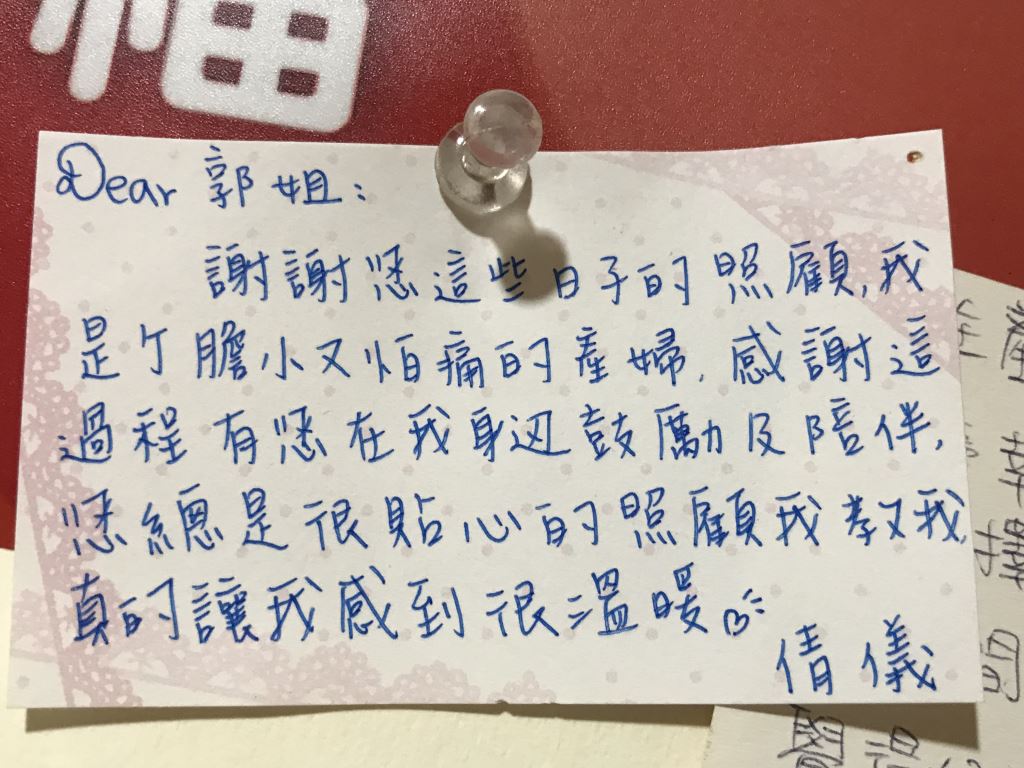 福
Dear 郭姐:
謝謝您這些日子的照顧,我
是个膽小又怕痛的產婦,感謝這
過程有您在我身边鼓勵及陪伴,
您總是很貼心的照顧我教我,
真的讓我感到很溫暖
倩儀